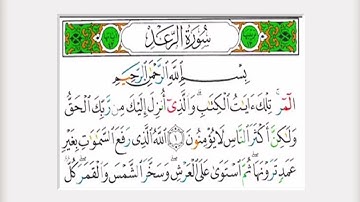 سُورَةُ الرَّعْدِ
بِسْمِ اللَّهِ الرَّحْمَٰنِ الرَّحِيمِ
الٓمٓر ۚ تِلْكَ ءَايَٰتُ الْكِتَٰبِ ۗ وَالَّذِىٓ أُنزِلَ إِلَيْكَ مِن رَّبِّكَ الْحَقُّ
وَلَٰكِنَّ أَكْثَرَ النَّاسِ لَا يُؤْمِنُونَ ١ اللَّهُ الَّذِى رَفَعَ السَّمَٰوَٰتِ بِغَيْرِ
عَمَدٍ تَرَوْنَهَا ۖ ثُمَّ اسْتَوَىٰ عَلَى الْعَرْشِ ۖ وَسَخَّرَ الشَّمْسَ وَالْقَمَرَ ۖ كُلٌّ